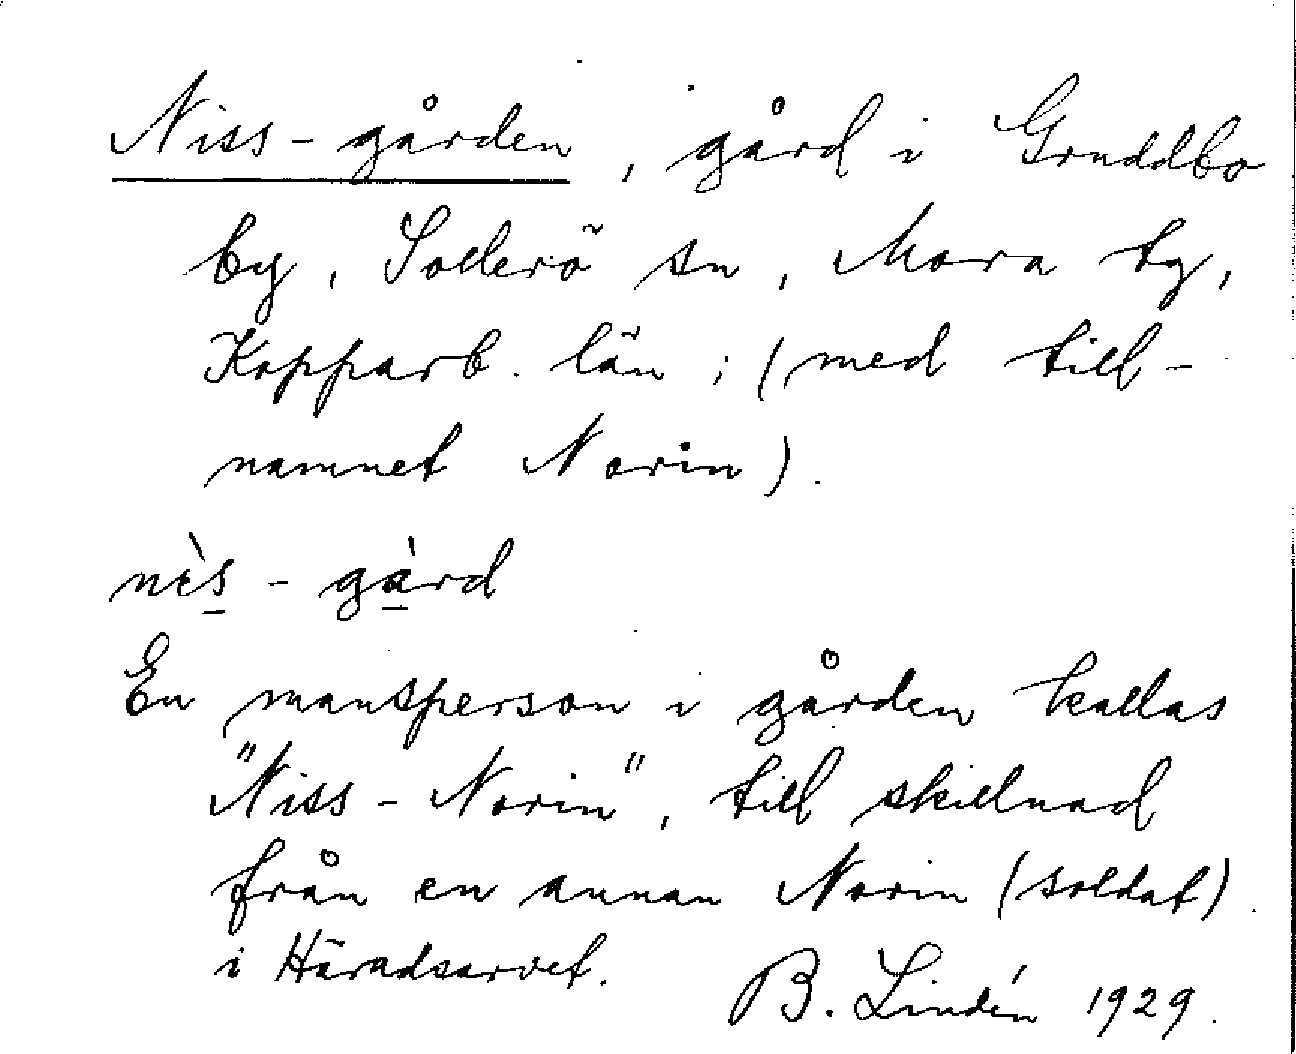 Niss-gården, gård i Gruddbo
by, Sollerö sn, Mora tg,
Kopparb. län; (med till-
namnet Norin).
nès-gàrd
En mansperson i gården kallas
"Niss-Norin", till skillnad
från en annan Norin (soldat)
i Häradsarvet.
B. Lindén 1929.